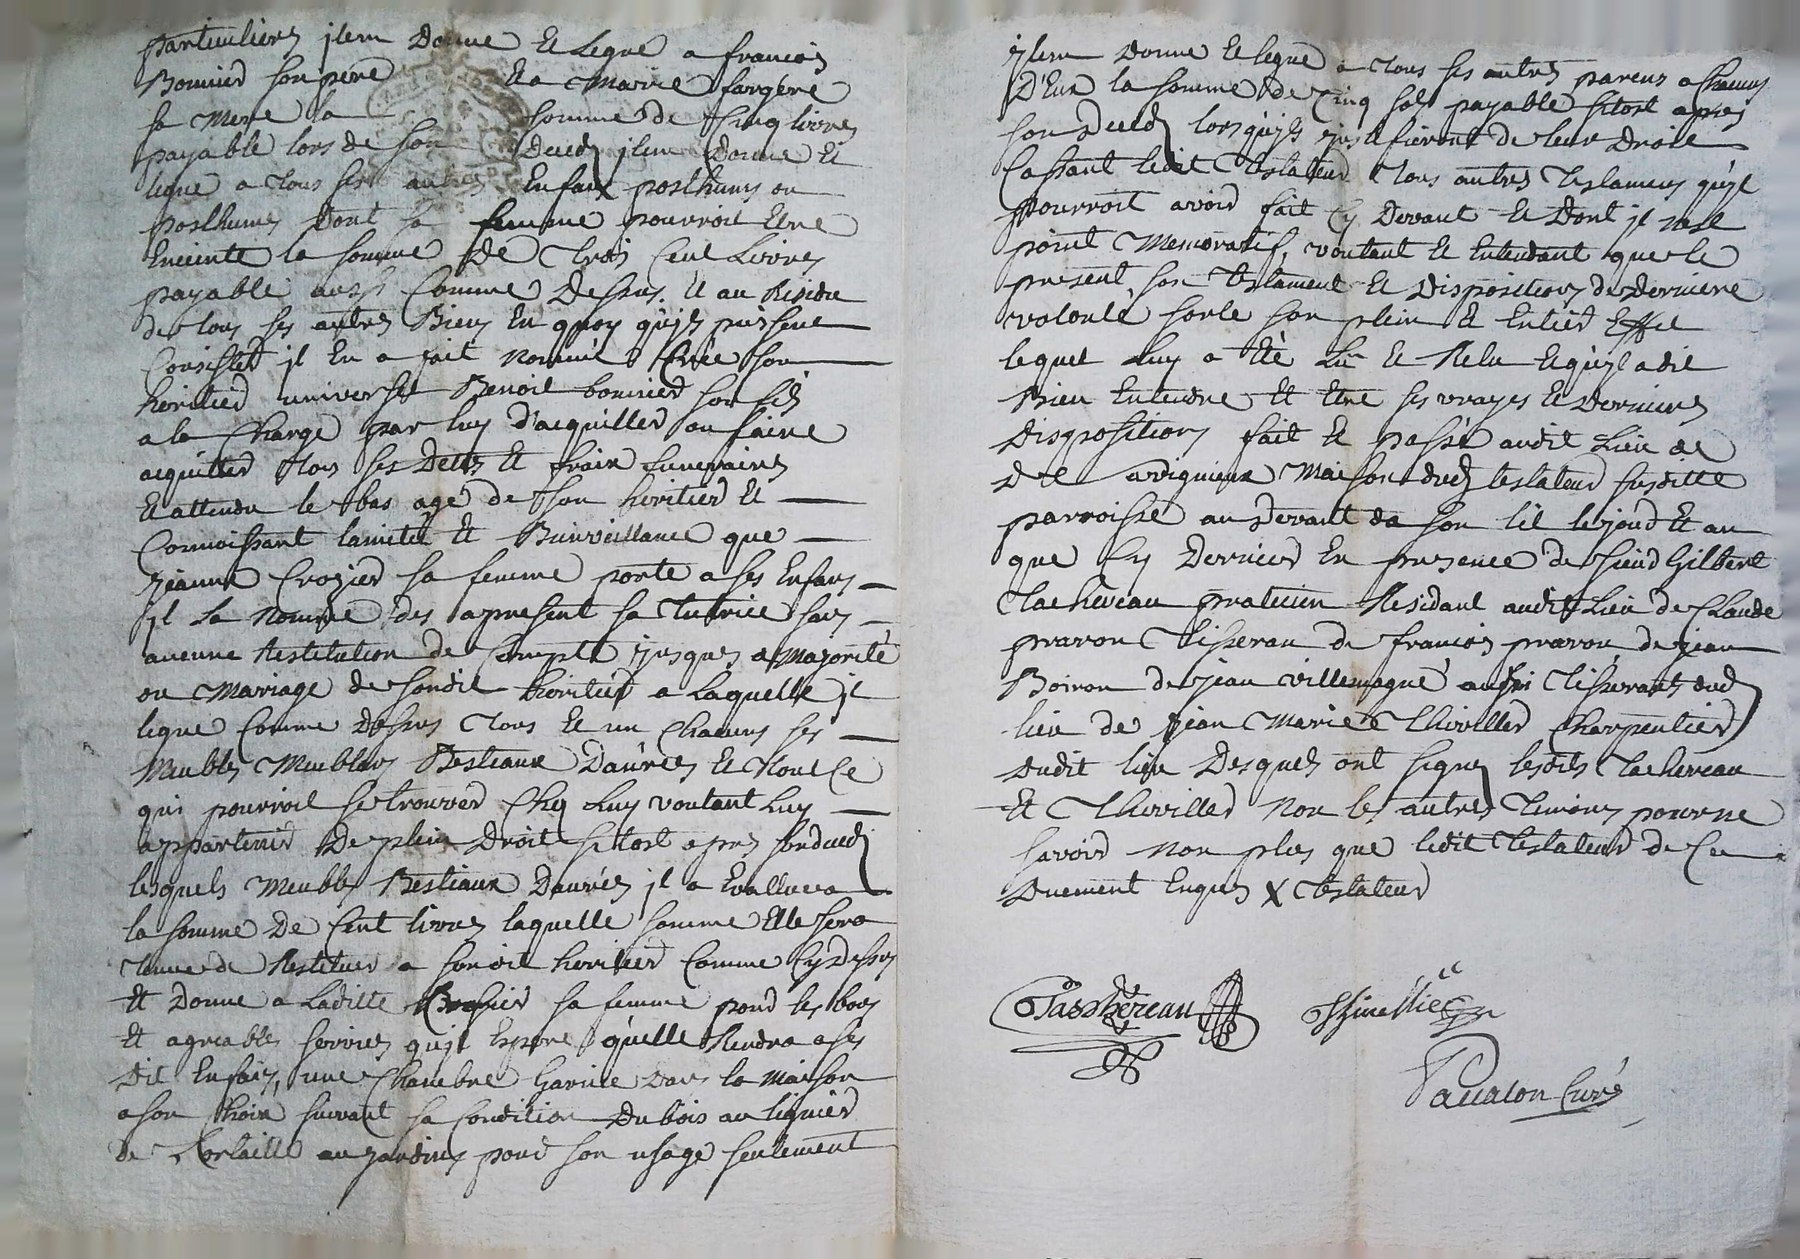 particuliers jtem Donne Et Legue a francois
Bonnier son pere Et a Marie fargere
sa Mere la somme de Cinq livres
payable lors de son Deceds jtem Donne Et
legue a tous ses autres Enfans posthums ou
posthumes Dont sa femme pourroit Etre
Enceinte la somme De trois Cent Livres
payable aussi Comme Dessus. Et au Residu
de tous ses autres Biens En quoy qu'jls puissent
Consister jl En a fait nommé Crée son
heritier universel Benoit bonnier son fils
a la Charge par luy d'acquitter ou faire
acquitter tous ses Dettes Et fraix funeraires
Et attendu le bas age de son heritier Et
Connoissant lamitié Et Bienveillance que
jeanne Crozier sa femme porte a ses Enfans
jl la nomme des apresent sa tutrice sans
aucune Restitution de Compte jusques a Majorité
ou Mariage de sondit heritier a Laquelle jl
legue Comme Dessus tous Et un Chacuns ses
Meubles Meublans Bestiaux Danrées Et tout Ce
qui pourroit se trouver Chez Luy voulant Luy
appartenir De plein Droit sitost apres son deceds
lesquels Meubles Bestiaux Danrées jl a Evalluée a
la somme De Cent livres laquelle somme Elle sera
tenue de Restituer a sondit heritier Comme Cy Dessus
Et Donne a Laditte Crozier sa femme pour les bons
Et agreables services qu'jl Espere qu'elle Rendra a ses
Dit Enfans, une Chambre Garnie Dans la Maison
a son Choix suivant sa Condition Du bois au lignier
de Lortaille au jardins pour son usage seulement
jtem Donne Et legue a tous ses autres parens a Chacuns
D'Eux la somme de Cinq sols payable sitost apres
son Deceds lorsqu'jls justifieront de leur Droit
Cassant ledit Testateur tous autres testamens qu'jl
pourroit avoir fait Cy Devant Et Dont jl nest
point Memoratif, voulant Et Entendant que le
present son testament Et Dispositions de Derniere
volonté sorte son plein Et Entier Effet
lequel luy a Eté Lû Et Relu Et qu'jl a dit
Bien Entendre Et Etre ses vrayes Et Dernieres
Dispositions fait Et passé audit Lieu de
De Maison dud testateur susditte
parroisse au Devant de son lit le jour Et an
que Cy Dernier En presence de sieur Gilbert
Tachereau praticien Residant audit Lieu de Claude
pravon tisseran de francois pravon, de jean
Boiron de jean villemagne aussi tisserants dud
lieu de jean Marie Thiviller Charpentier
Dudit lieu Desquels ont signes lesdits Tachereau
Et Thiviller non les autres temoins pour ne
savoir non plus que ledit Testateur de Ce
Duement Enquis X testateur
Taschereau
Pacalon Curé